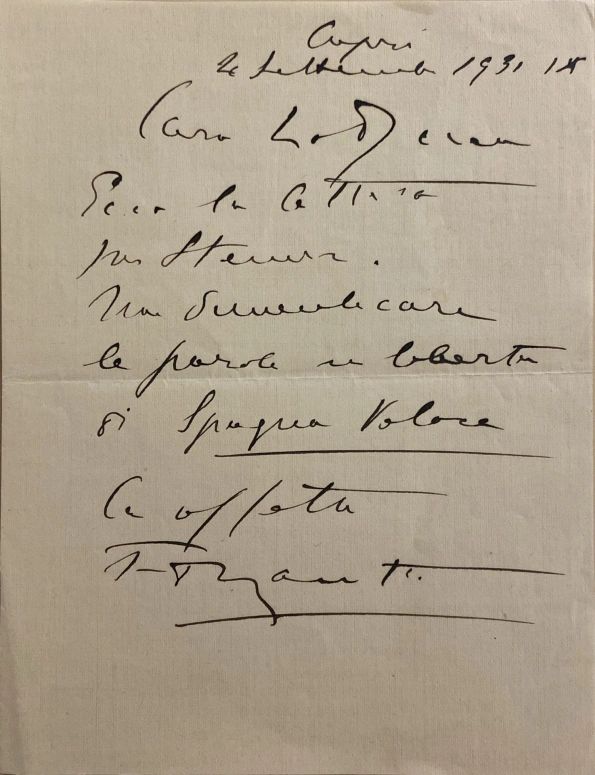 Capri
2 Settembre 1931 IX
Caro
Ecco la lettera
per
Non dimenticare
le parole in libertà
di Spagna Veloce
Con affetto
F T Marinetti